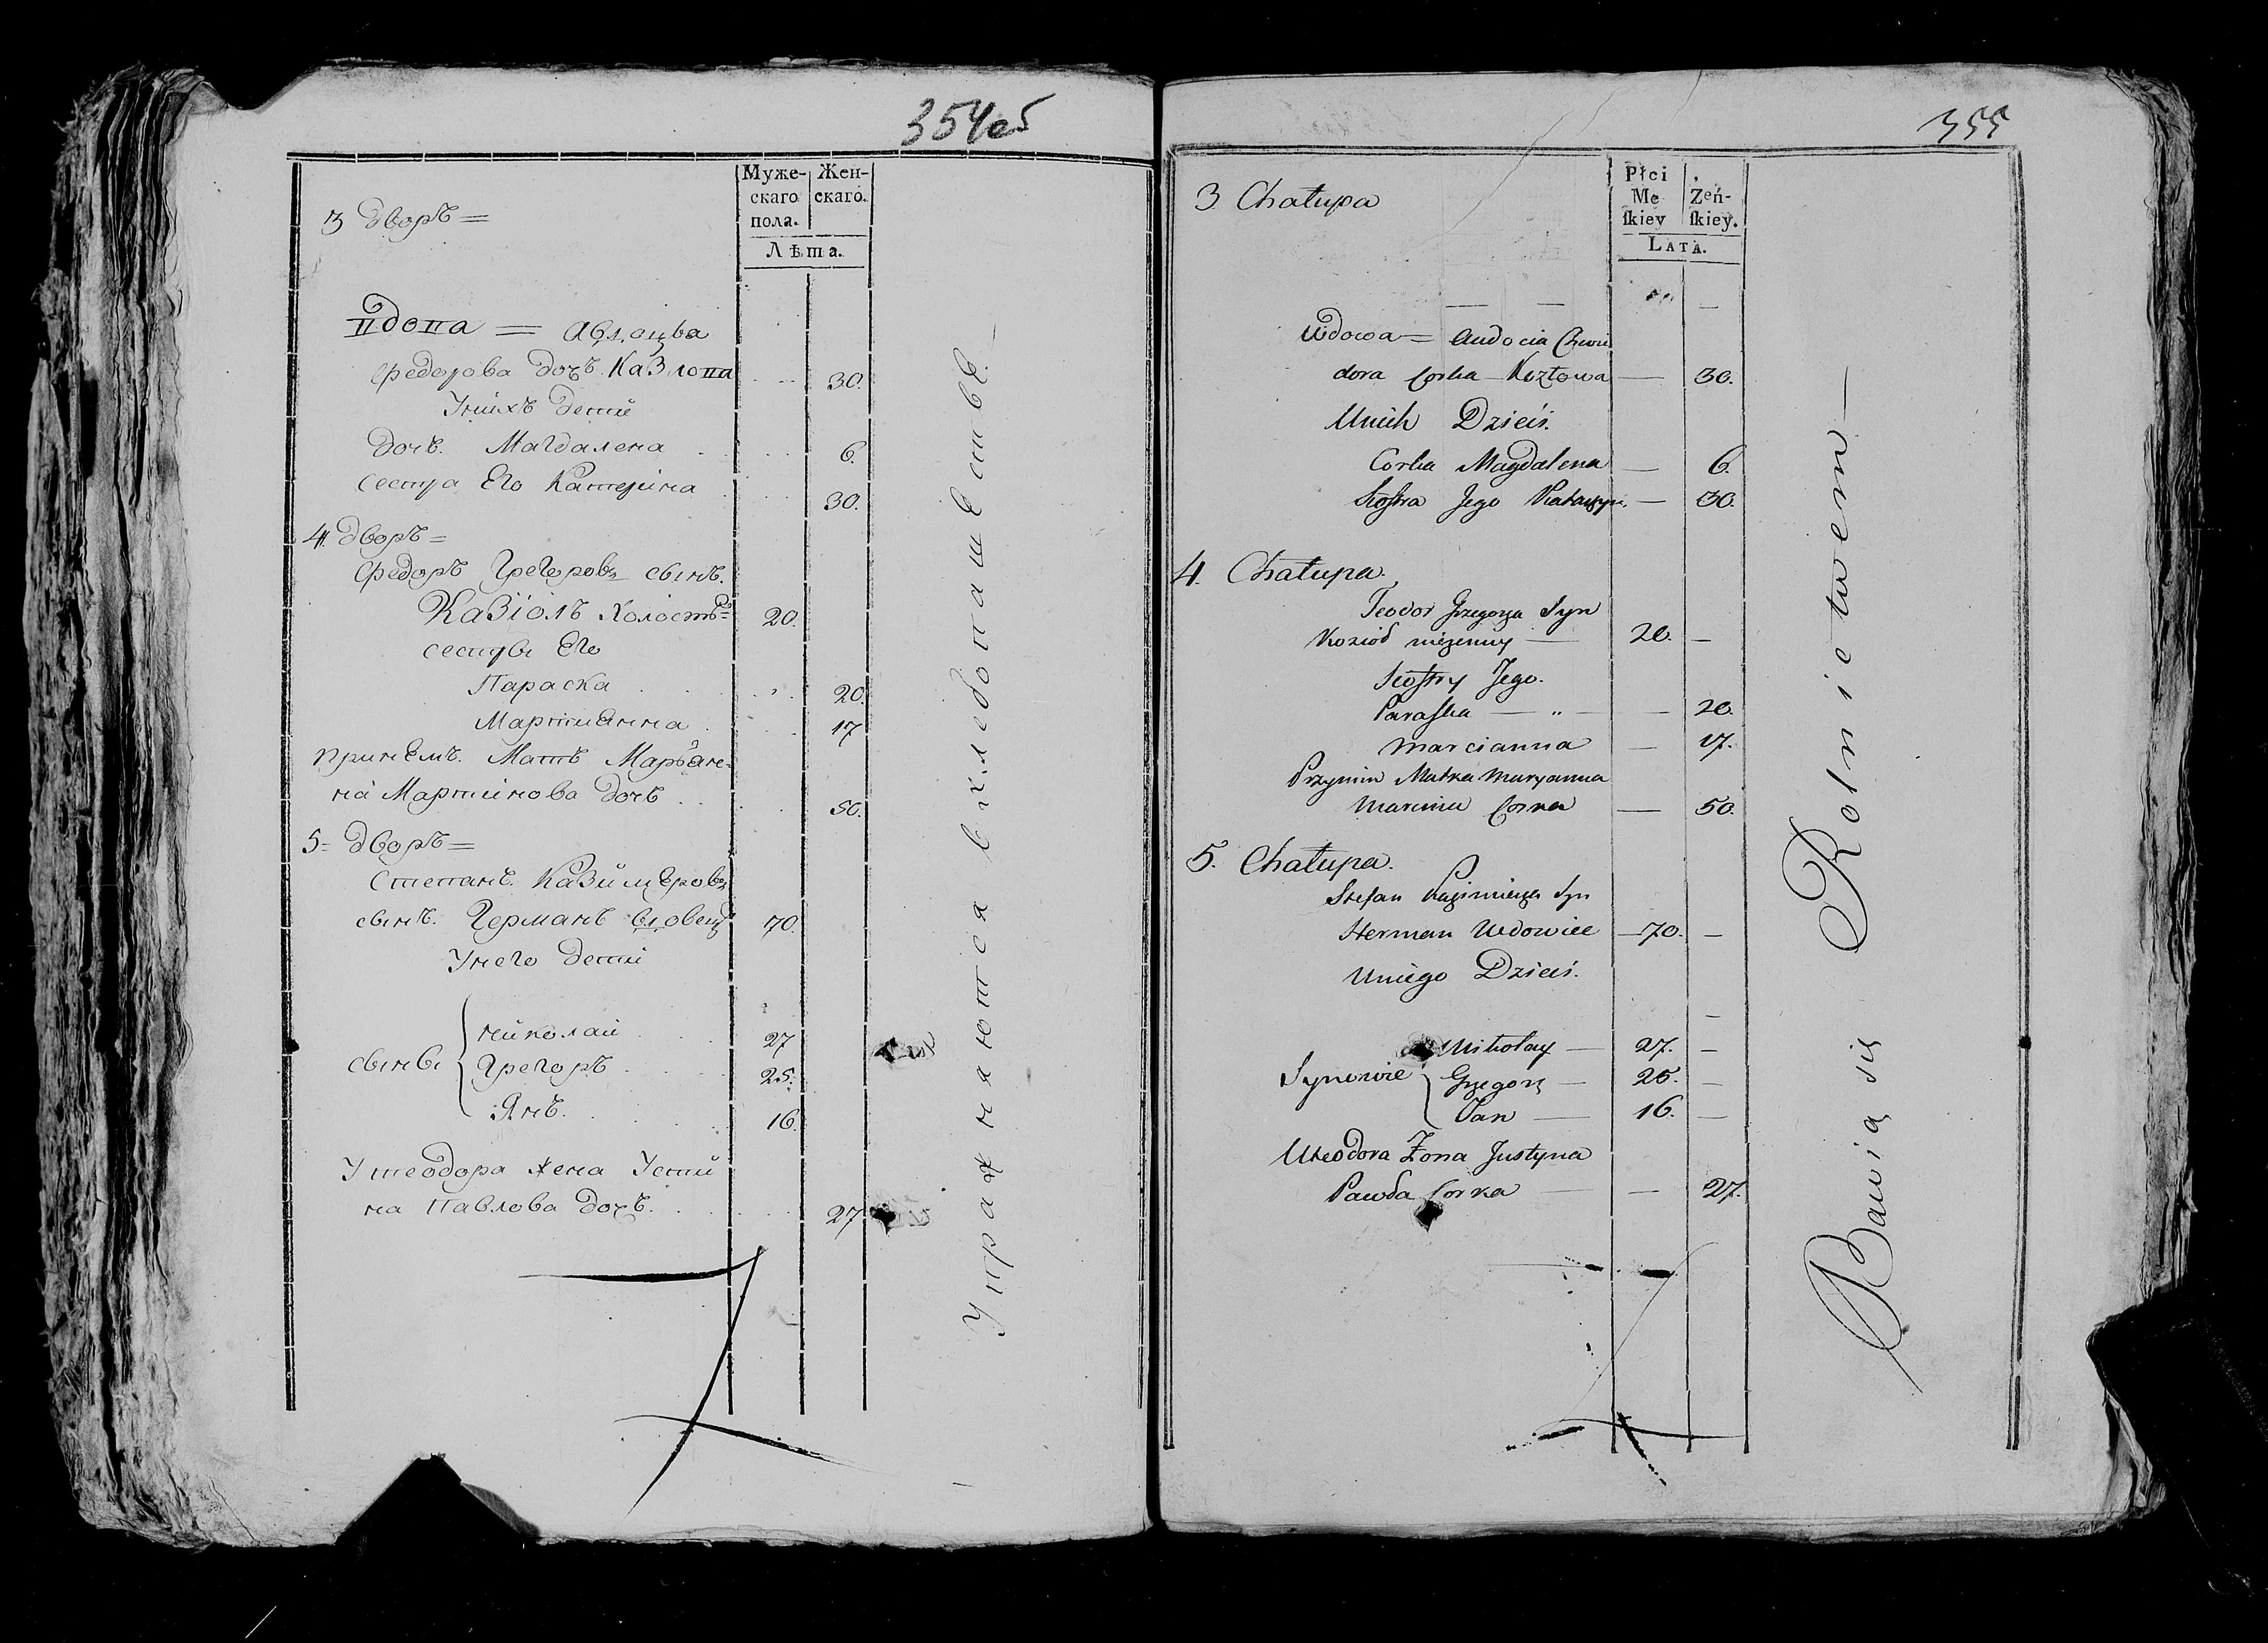 354об
Муже-
скаго
пола.
Жен-
скаго.
Лѣта.
3 дворъ =
вдова =
Федорова дочь Казлова 30.
Уních дети
Дочь Магдалена 6.
сестра Его Катерина 30.
4. дворъ =
Федоръ Грегоровъ сынъ
Казіолъ Холостъ 20.
сестры Его
Параска 20.
Мартианна 17
Мать Марьян-
на Мартинова дочь 50.
5 = дворъ =
Степанъ Казимеровъ
сынъ Германъ вдовецъ 70.
Унего дети
сыны
николай 27
Грегоръ 25.
Янъ 16.
Утеодора жена Усти
на Павлова дочь 27
Упражняются в хлебопашестве. —
355
Płci
Mę
skiey
Żeń-
skiey.
LATA.
3. Chałupa
Wdowa =
dora Corka Kozłowa — 30.
Unich Dzieci.
Corka Magdalena — 6.
Siostra Jego — 30.
4. Chałupa.
Teodor Grzegorza Syn
Kozioł nieżenny — 20. —
Siostry Jego.
Paraska — 20.
Marcianna — 17.
Przymin Matka Maryanna
Marcina Corka — 50.
5. Chałupa.
Stefan Kazimierza Syn
Herman Wdowiec — 70. —
Uniego Dzieci.
Synowie
Mikołay — 27. —
Grzegorz — 25. —
Jan — 16. —
Uteodora Żona Justyna
Pawła Corka — 27.
Bawią się Rolnictwem —